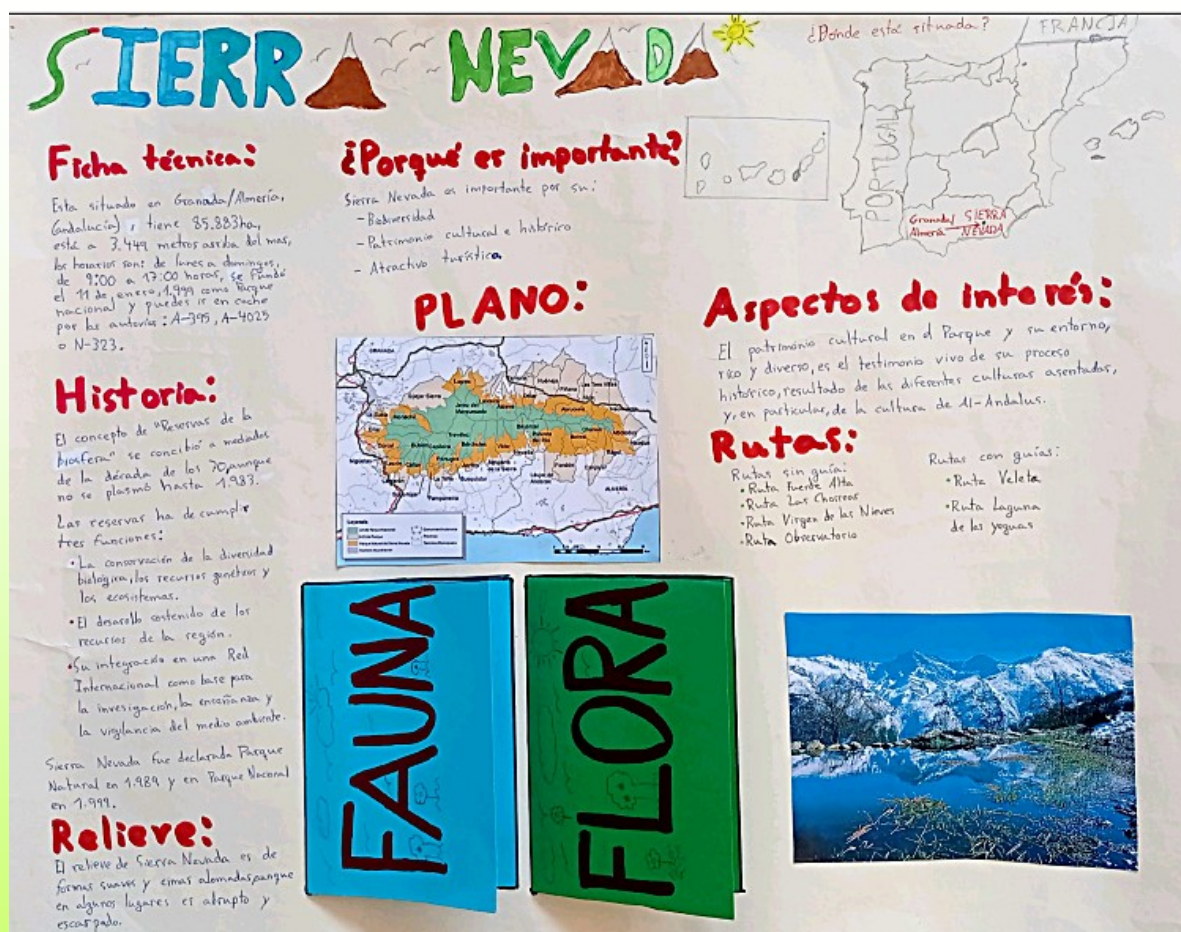 SIERRA NEVADA
¿Dónde está situada?
FRANCIA
PORTUGAL
Granada/
Almería
SIERRA
NEVADA
Ficha técnica:
Esta situado en Granada/Almería,
(andalucía) y tiene 85.883ha,
está a 3.449 metros arriba del mar,
los horarios son: de lunes a domingos,
de 9:00 a 17:00 horas, se fundó
el 11 de, enero, 1.999 como Parque
nacional y puedes ir en coche
por las autovías: A-395, A-4025
o N-323.
Historia:
El concepto de "Reservas de la
biosfera" se concibió a mediados
de la década de los 70, aunque
no se plasmó hasta 1.983.
Las reservas ha de cumplir
tres funciones:
• La conservación de la diversidad
biológica, los recursos genéticos y
los ecosistemas.
• El desarollo sostenido de los
recursos de la región.
• Su integración en una Red
Internacional como base para
la investigación, la enseñanza y
la vigilancia del medio ambiente.
Sierra Nevada fue declarada Parque
Natural en 1.989 y en Parque Nacional
en 1.999.
Relieve:
El relieve de Sierra Nevada es de
formas suaves y cimas alomadas, aunque
en algunos lugares es abrupto y
escarpado.
¿Porqué es importante?
Sierra Nevada es importante por su:
- Biodiversidad
- Patrimonio cultural e histórico
- Atractivo turística
PLANO:
GRANADA
Lugros
Huéneja
Fiñana
Jerez del
Marquesado
Monachil
Dílar
Trevélez
Bubión
Capileira
Bérchules
Pórtugos
Cáñar
Lanjarón
Pampaneira
Busquístar
ALMERÍA
Leyenda
FAUNA
FLORA
Aspectos de interés:
El patrimonio cultural en el Parque y su entorno,
rico y diverso, es el testimonio vivo de su proceso
histórico, resultado de las diferentes culturas asentadas,
y, en particular, de la cultura de Al-Andalus.
Rutas:
Rutas sin guía:
• Ruta Fuente Alta
• Ruta Las Chorreras
• Ruta Virgen de las Nieves
• Ruta Observatorio
Rutas con guías:
• Ruta Veleta
• Ruta Laguna
de las yeguas